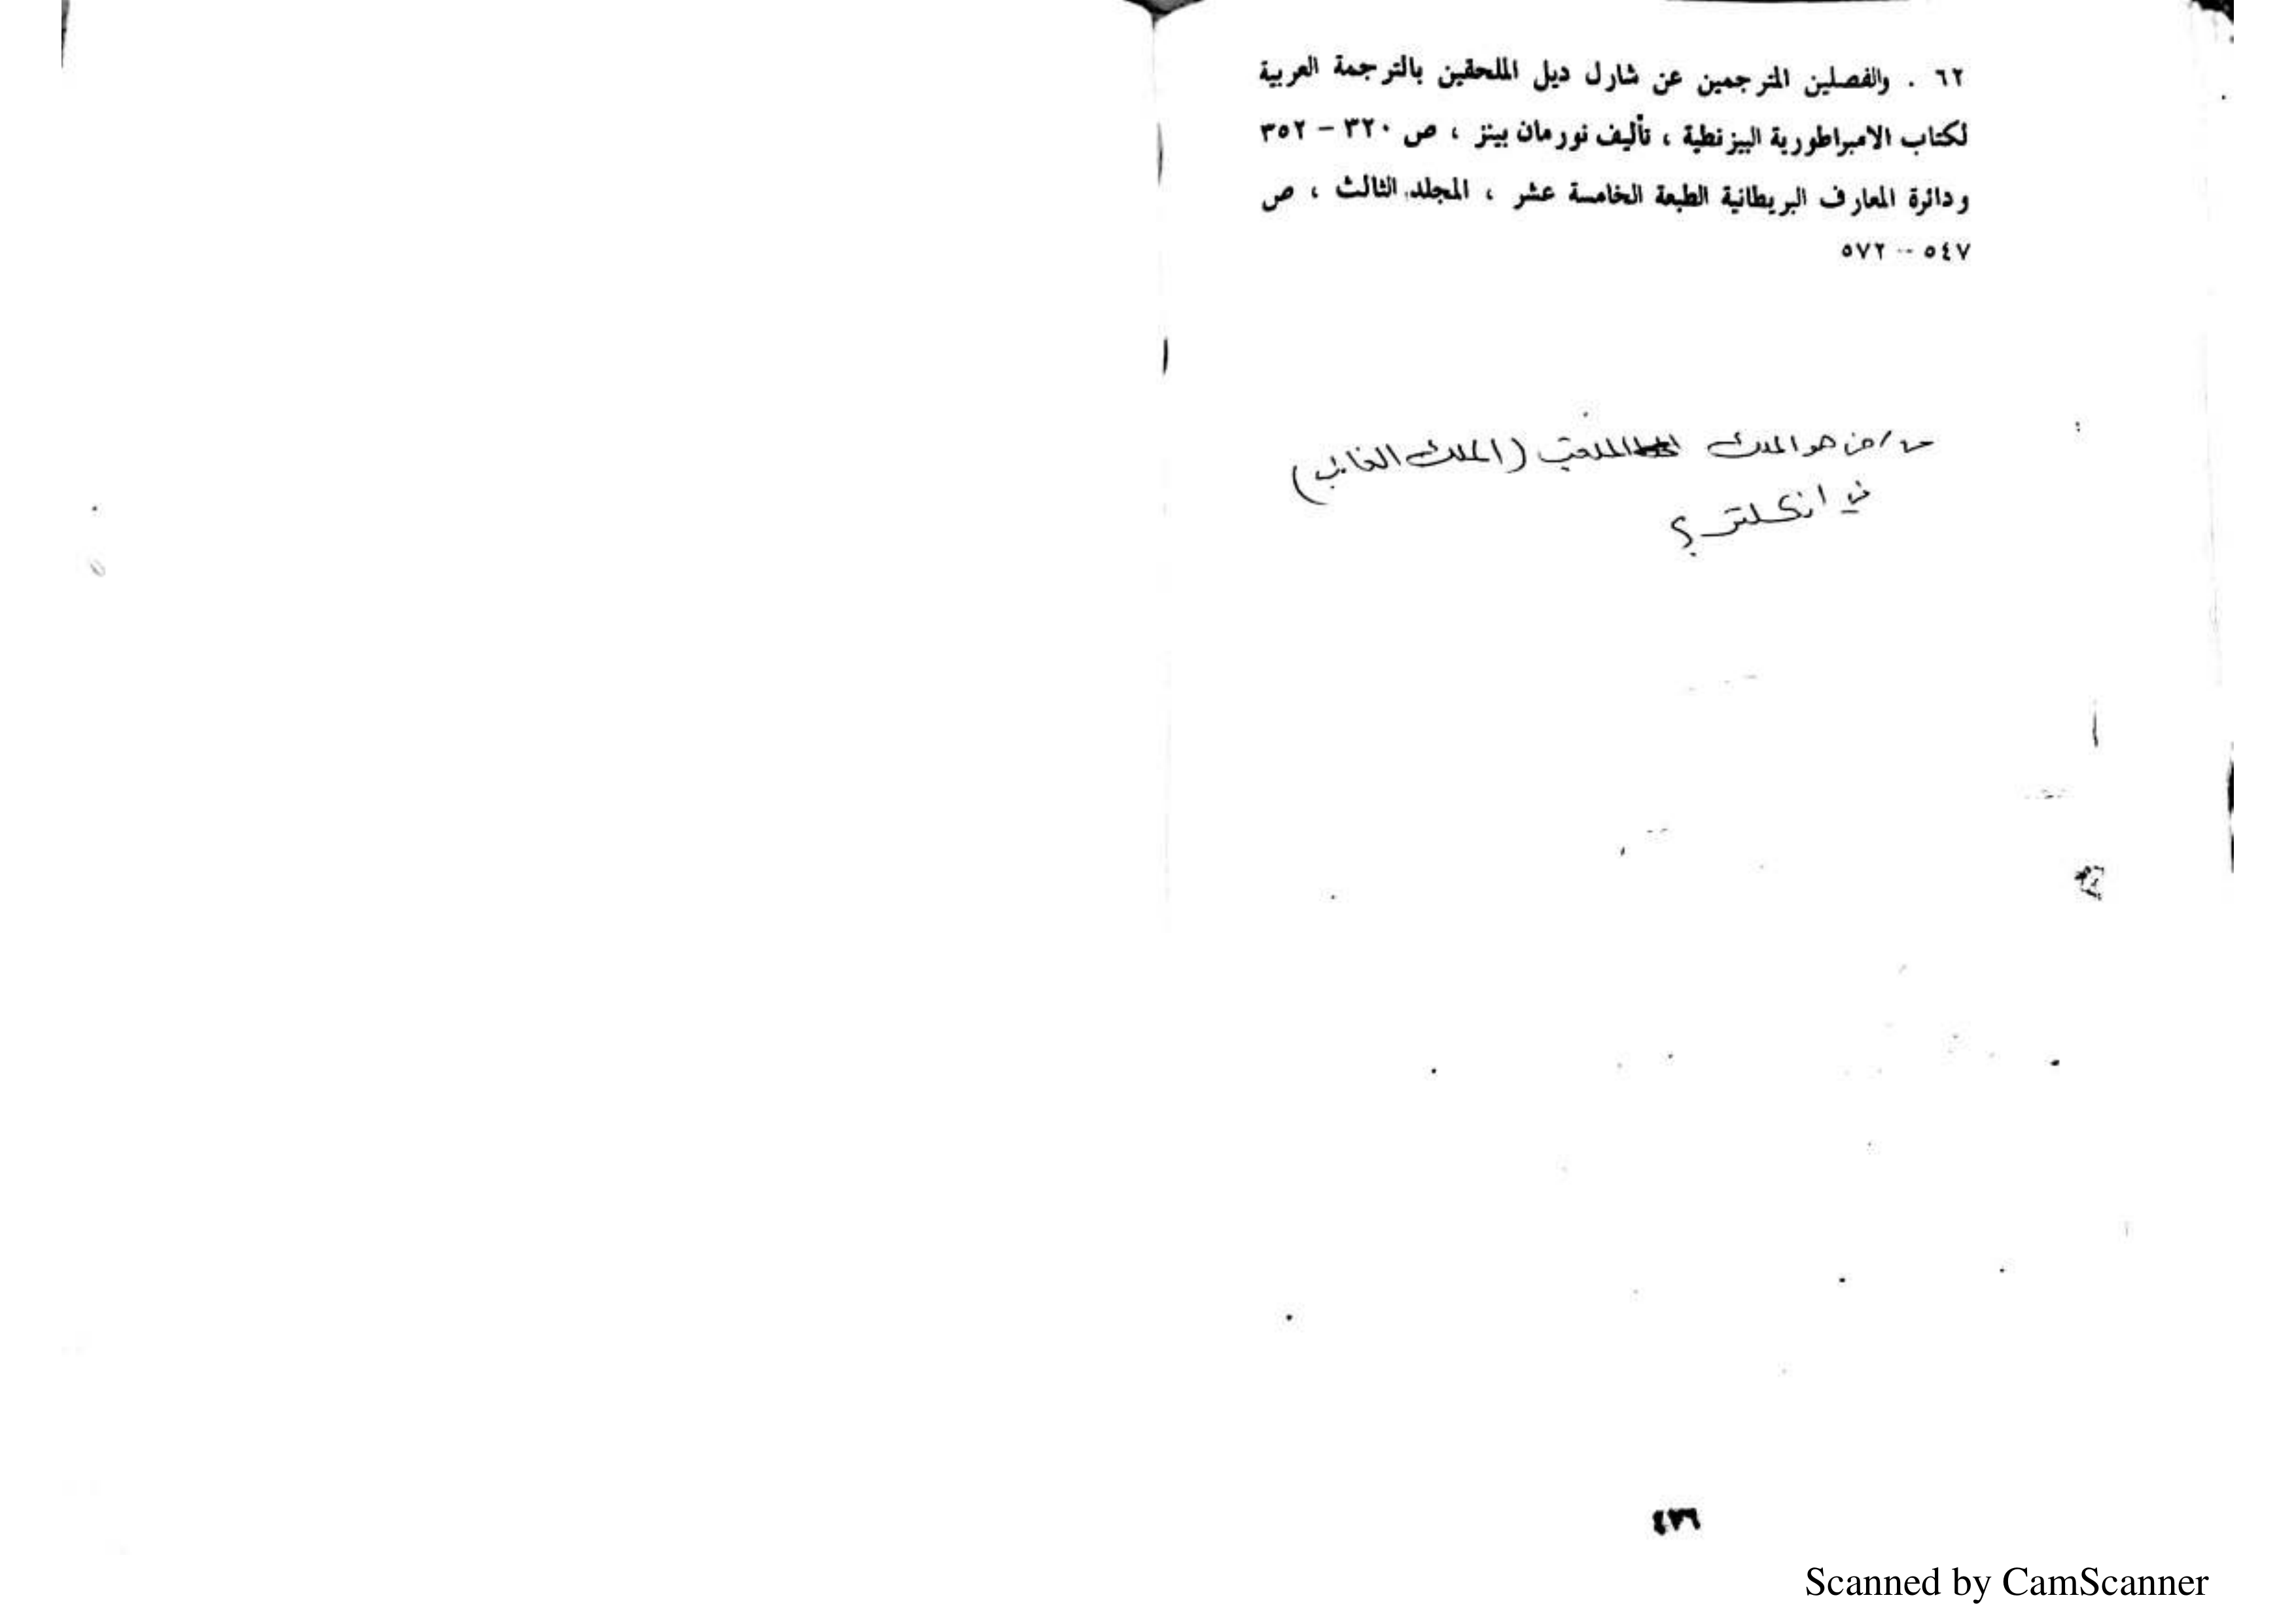 ٦٢ . والفصلين المترجمين عن شارل ديل الملحقين بالترجمة العربية
لكتاب الامبراطورية البيزنطية ، تأليف نورمان بينز ، ص ٣٢٠ – ٣٥٢
ودائرة المعارف البريطانية الطبعة الخامسة عشر ، المجلد الثالث ، ص
٥٤٧ -- ٥٧٢
س / من هو الملك الملقب (الملك الغائب)
في انكلترا ؟
Scanned by CamScanner